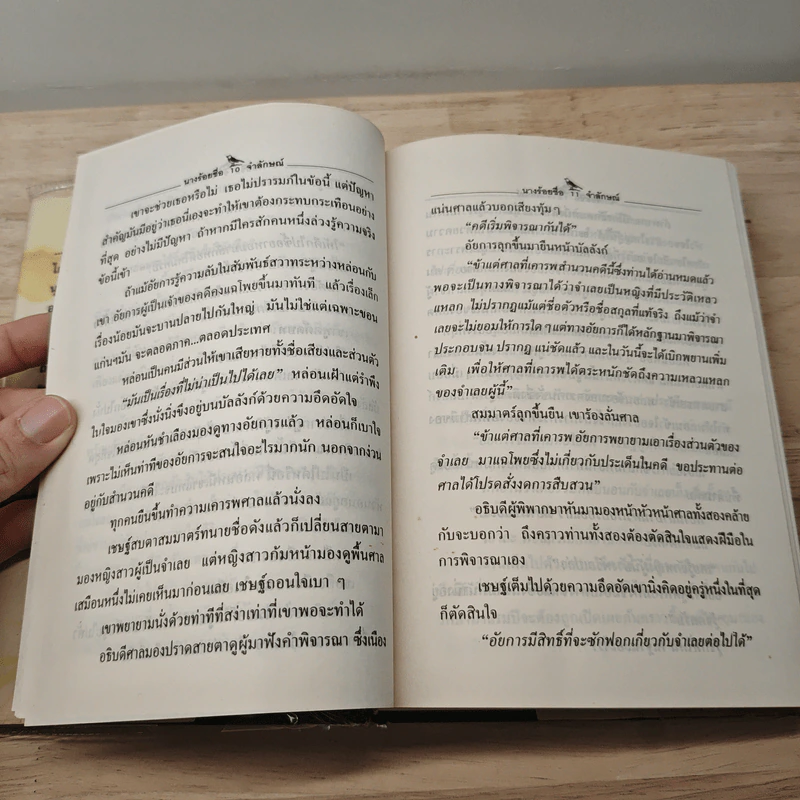 นางร้อยชื่อ 10 จำลักษณ์
เขาจะช่วยเธอหรือไม่ เธอไม่ปรารมภ์ในข้อนี้ แต่ปัญหา
สำคัญมันมีอยู่ว่าเธอนี้เองจะทำให้เขาต้องกระทบกระเทือนอย่าง
ที่สุด อย่างไม่มีปัญหา ถ้าหากมีใครสักคนหนึ่งล่วงรู้ความจริง
ข้อนี้เข้า
ถ้าแม้อัยการรู้ความลับในสัมพันธ์สวาทระหว่างหล่อนกับ
เขา อัยการผู้เป็นเจ้าของคดีคงแฉโพยขึ้นมาทันที แล้วเรื่องเล็ก
เรื่องน้อยมันจะบานปลายไปกันใหญ่ มันไม่ใช่แต่เฉพาะขอน
แก่นฯมัน จะตลอดภาค...ตลอดประเทศ
หล่อนเป็นคนมีส่วนให้เขาเสียหายทั้งชื่อเสียงและส่วนตัว
“มันเป็นเรื่องที่ไม่น่าเป็นไปได้เลย” หล่อนเฝ้าแต่รำพึง
ในใจมองเขาซึ่งนั่งนิ่งขึงอยู่บนบัลลังก์ด้วยความอึดอัดใจ
หล่อนหันชำเลืองมองดูทางอัยการแล้ว หล่อนก็เบาใจ
เพราะไม่เห็นท่าทีของอัยการจะสนใจอะไรมากนัก นอกจากง่วน
อยู่กับสำนวนคดี
ทุกคนยืนขึ้นทำความเคารพศาลแล้วนั่งลง
เชษฐ์สบตาสมมาตร์ทนายชื่อดังแล้วก็เปลี่ยนสายตามา
มองหญิงสาวผู้เป็นจำเลย แต่หญิงสาวก้มหน้ามองดูพื้นศาล
เสมือนหนึ่งไม่เคยเห็นมาก่อนเลย เชษฐ์ถอนใจเบา ๆ
เขาพยายามนั่งด้วยท่าทีที่สง่าเท่าที่เขาพอจะทำได้
อธิบดีศาลมองปราดสายตาดูผู้มาฟังคำพิจารณา ซึ่งเนือง
นางร้อยชื่อ 11 จำลักษณ์
แน่นศาลแล้วบอกเสียงทุ้ม ๆ
“คดีเริ่มพิจารณากันได้”
อัยการลุกขึ้นมายืนหน้าบัลลังก์
“ข้าแต่ศาลที่เคารพสำนวนคดีนี้ซึ่งท่านได้อ่านหมดแล้ว
พอจะเป็นทางพิจารณาได้ว่าจำเลยเป็นหญิงที่มีประวัติเหลว
แหลก ไม่ปรากฏแม้แต่ชื่อตัวหรือชื่อสกุลที่แท้จริง ถึงแม้ว่าจำ
เลยจะไม่ยอมให้การใด ๆ แต่ทางอัยการก็ได้หลักฐานมาพิจารณา
ประกอบจน ปรากฏ แน่ชัดแล้ว และในวันนี้จะได้เบิกพยานเพิ่ม
เติม เพื่อให้ศาลที่เคารพได้ตระหนักชัดถึงความเหลวแหลก
ของจำเลยผู้นี้”
สมมาตร์ลุกขึ้นยืน เขาร้องลั่นศาล
“ข้าแต่ศาลที่เคารพ อัยการพยายามเอาเรื่องส่วนตัวของ
จำเลย มาแฉโพยซึ่งไม่เกี่ยวกับประเด็นในคดี ขอประทานต่อ
ศาลได้โปรดสั่งงดการสืบสวน”
อธิบดีผู้พิพากษาหันมามองหน้าหัวหน้าศาลทั้งสองคล้าย
กับจะบอกว่า ถึงคราวท่านทั้งสองต้องตัดสินใจแสดงฝีมือใน
การพิจารณาเอง
เชษฐ์เต็มไปด้วยความอึดอัดเขานิ่งคิดอยู่ครู่หนึ่งในที่สุด
ก็ตัดสินใจ
“อัยการมีสิทธิ์ที่จะซักฟอกเกี่ยวกับจำเลยต่อไปได้”